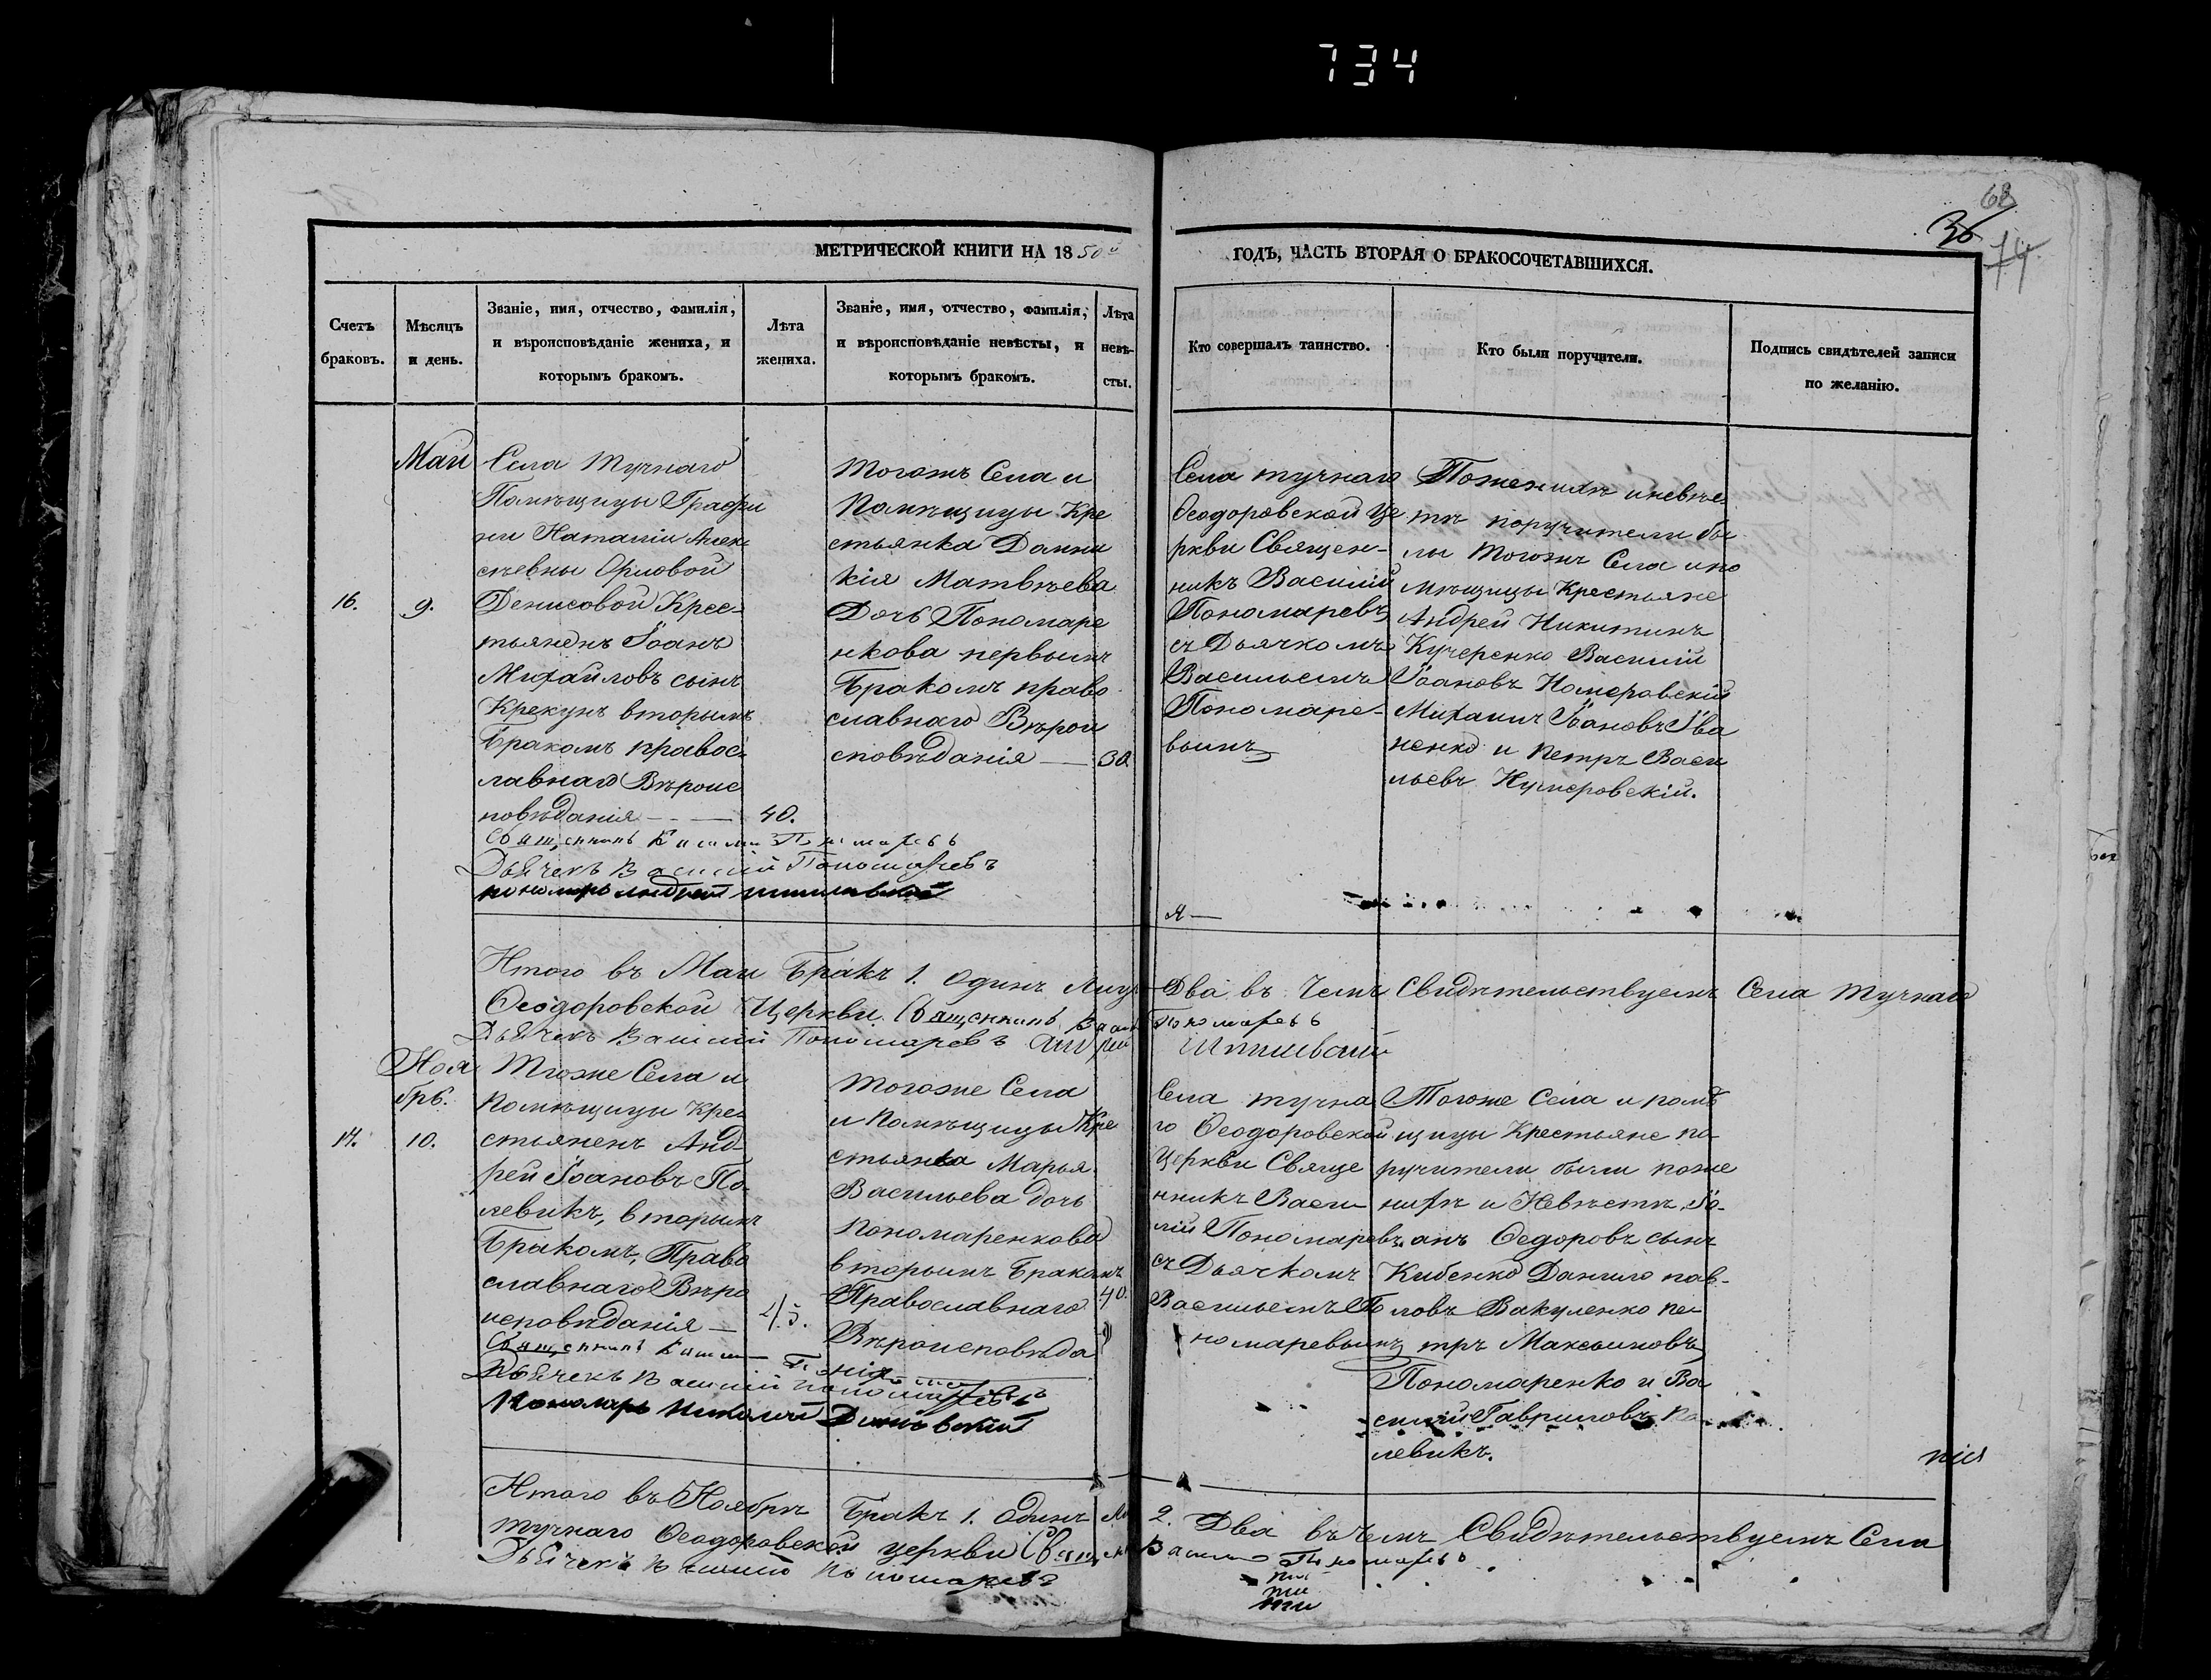 734
68
36
74
МЕТРИЧЕСКОЙ КНИГИ НА 1850й
ГОДЪ, ЧАСТЬ ВТОРАЯ О БРАКОСОЧЕТАВШИХСЯ.
Счетъ
браковъ.
Мѣсяцъ
и день.
Званіе, имя, отчество, фамилія,
и вѣроисповѣданіе жениха, и
которымъ бракомъ.
Лѣта
жениха.
Званіе, имя, отчество, фамилія,
и вѣроисповѣданіе невѣсты, и
которымъ бракомъ.
Лѣта
невѣ-
сты.
Кто совершалъ таинство.
Кто были поручители.
Подпись свидѣтелей записи
по желанію.
16.
Маи
9.
Села Тучнаго
Помѣщицы Графи
ни Наталіи Алек
сѣевны Орловой
Денисовой Крес-
тьяненъ Іоанъ
Михайловъ сынъ
Крекунъ вторымъ
Бракомъ правос-
лавнаго Вѣроис
повѣданія - - —
40.
Тогожъ Села и
Помѣщицы Кре
стьянка Домни
кія Матвѣева
Дочь Пономаре
нкова первымъ
Бракомъ право
славнаго Вѣрои
сповѣданія —
30.
Села тучнаго
Ѳеодоровской Це
ркви Священ-
никъ Василій
Пономаревъ
съ Дьячкомъ
Васильемъ
Пономаре-
вымъ
Поженихѣ иневѣс
тѣ поручители бы
лы Тогожъ Села ипо
мѣщицы Крестьяне
Андрей Никитинъ
Кучеренко Василій
Іоановъ Номеровскій
Михаилъ Іоановъ Ива
ненко и Петръ Васи
льевъ Нумеровскій.
Священникъ Василій Пономаревъ
Дьячекъ Василій Пономаревъ
пономарь Андрей
Итого въ Маи Бракъ 1. одинъ Лицъ Два въ Чемъ Свидѣтельствуемъ Села Тучнаго
Ѳеодоровской Церкви Священникъ Василій Пономаревъ
Дьячекъ Василій Пономаревъ
17.
Ноя
брь.
10.
Тогоже Села и
помѣщицы Кре-
стьяненъ Анд-
рей Іоановъ По-
левикъ, вторымъ
Бракомъ, Право
славнаго Вѣро
исповѣданія —
45.
Тогоже Села
и Помѣщицы Кре
стьянка Марья
Васильева дочь
Пономаренкова
вторымъ Бракомъ
Православнаго
Вѣроисповѣда
нія
40.
Села тучна
го Ѳеодоровской
Церкви Свяще
нникъ Васи-
лій Пономаревъ
съ Дьячкомъ
Васильемъ По
номаревымъ
Тогоже Села и помѣ
щицы Крестьяне по-
ручители были поже
нихѣ и Невѣстѣ, Іо-
анъ Ѳедоровъ сынъ
Кибенко Данило пав-
ловъ Вакуленко пе-
тръ Максимовъ
Пономаренко и Ва
силій Гавриловъ По
левикъ.
Священникъ Василій
Дьячекъ Василій Пономаревъ
Пономарь Николай
Итого въ Ноябрѣ Бракъ 1. Одинъ Ли 2. Два въ Чемъ Свидѣтельствуемъ Села
тучнаго Ѳеодоровской церкви Священ Василій Пономаревъ
Дьячекъ Василій Пономаревъ